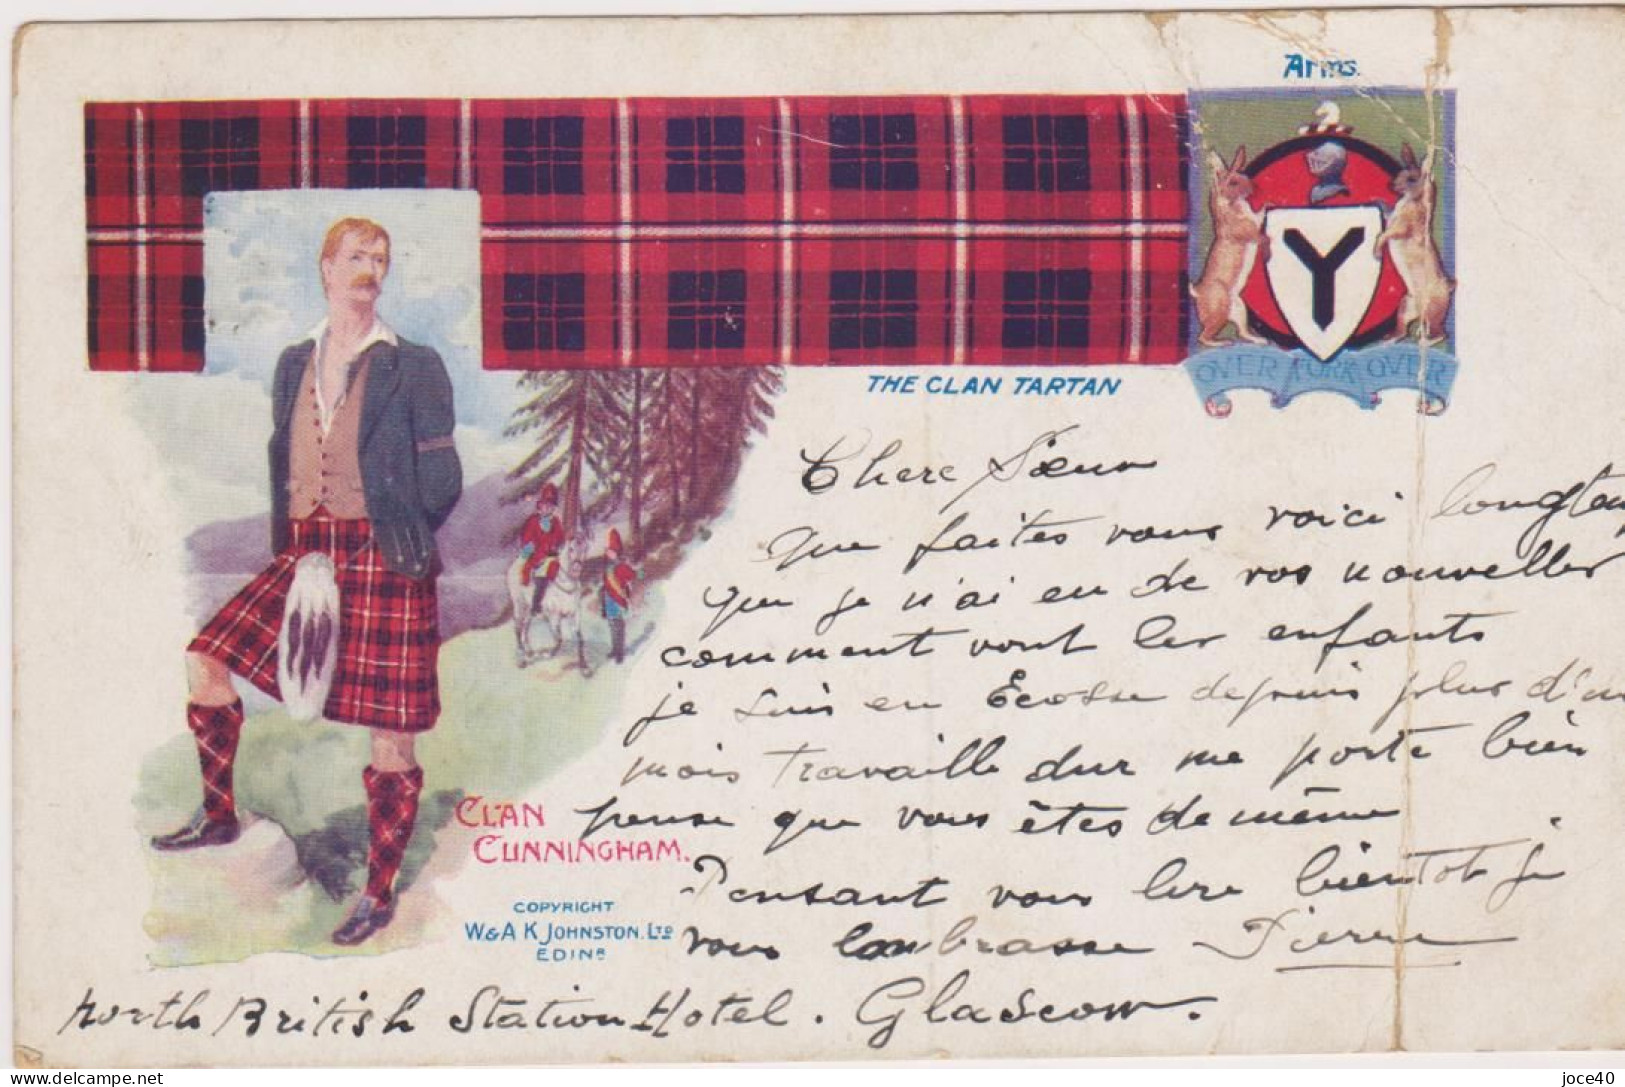 Arms.
OVER FORK OVER
THE CLAN TARTAN
Chere Sœur
que faites vous voici longtemp
que je n'ai eu de vos nouvelles
comment vont les enfants
je suis en Ecosse depuis plus d'un
mois travaille dur me porte bien
pense que vous êtes de même
Pensant vous lire bientot je
vous embrasse Pierre
CLAN
CUNNINGHAM.
COPYRIGHT
W & A K JOHNSTON. LTD
EDINR
North British Station Hotel. Glascow.
delcampe.net
joce40